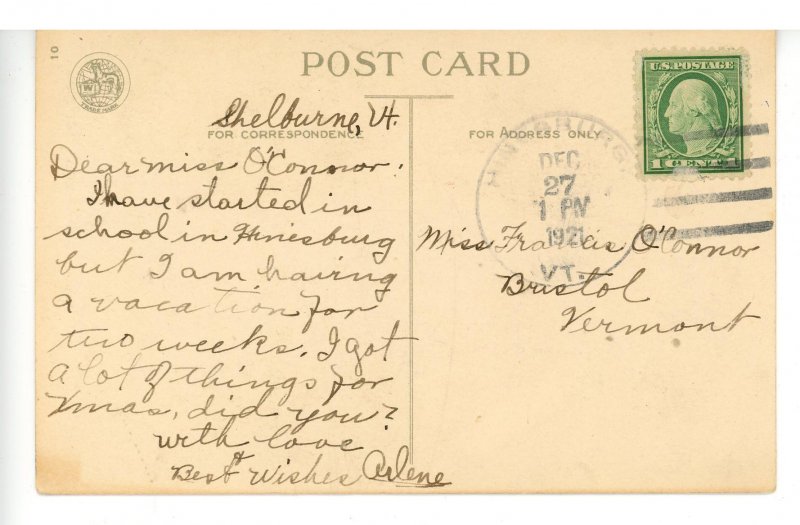 10
POST CARD
TRADE MARK
Shelburne, Vt.
FOR CORRESPONDENCE
Dear miss O'Connor.
I have started in
school in Hinesburg
but I am having
a vacation for
two weeks. I got
a lot of things for
Xmas, did you?
with love
Best Wishes Arlene
FOR ADDRESS ONLY
U.S. POSTAGE
1 CENT 1
HINESBURG,
DEC
27
1 PM
1921
VT.
Miss Francis O'Connor
Bristol
Vermont